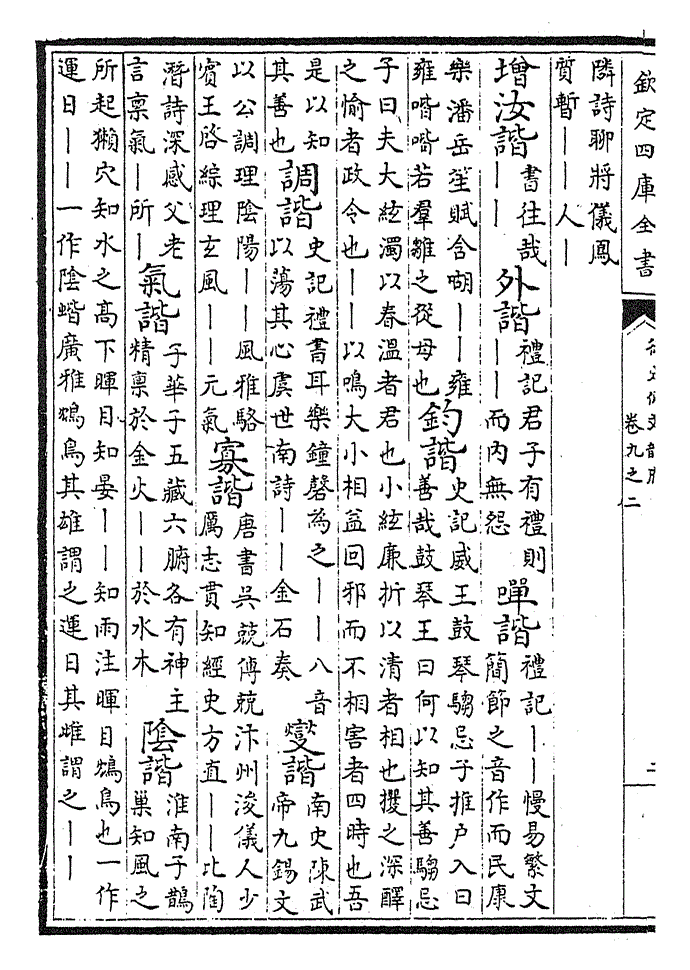 欽定四庫全書
卷九之二
二
隣詩聊將儀鳳
質暫——人—
增汝諧
書往哉
——
外諧
禮記君子有禮則
——而內無怨
嘽諧
禮記——慢易繁文
簡節之音作而民康
樂潘岳笙賦含㗅——雍
雍喈喈若羣雛之從母也
鈞諧
史記威王鼓琴騶忌子推户入曰
善哉鼓琴王曰何以知其善騶忌
子曰夫大絃濁以春溫者君也小絃廉折以清者相也攫之深醳
之愉者政令也——以鳴大小相益回邪而不相害者四時也吾
是以知
其善也
調諧
史記禮書耳樂鐘磬為之——八音
以蕩其心虞世南詩——金石奏
燮諧
南史陳武
帝九錫文
以公調理陰陽——風雅駱
賓王啓綜理玄風——元氣
寡諧
唐書吳兢傳兢汴州浚儀人少
厲志貫知經史方直——比陶
潛詩深感父老
言禀氣—所—
氣諧
子華子五藏六腑各有神主
精禀於金火——於水木
陰諧
淮南子鵲
巢知風之
所起獺穴知水之高下暉目知晏——知雨注暉目鴆鳥也一作
運日——一作陰蝔廣雅鴆鳥其雄謂之運日其雌謂之——